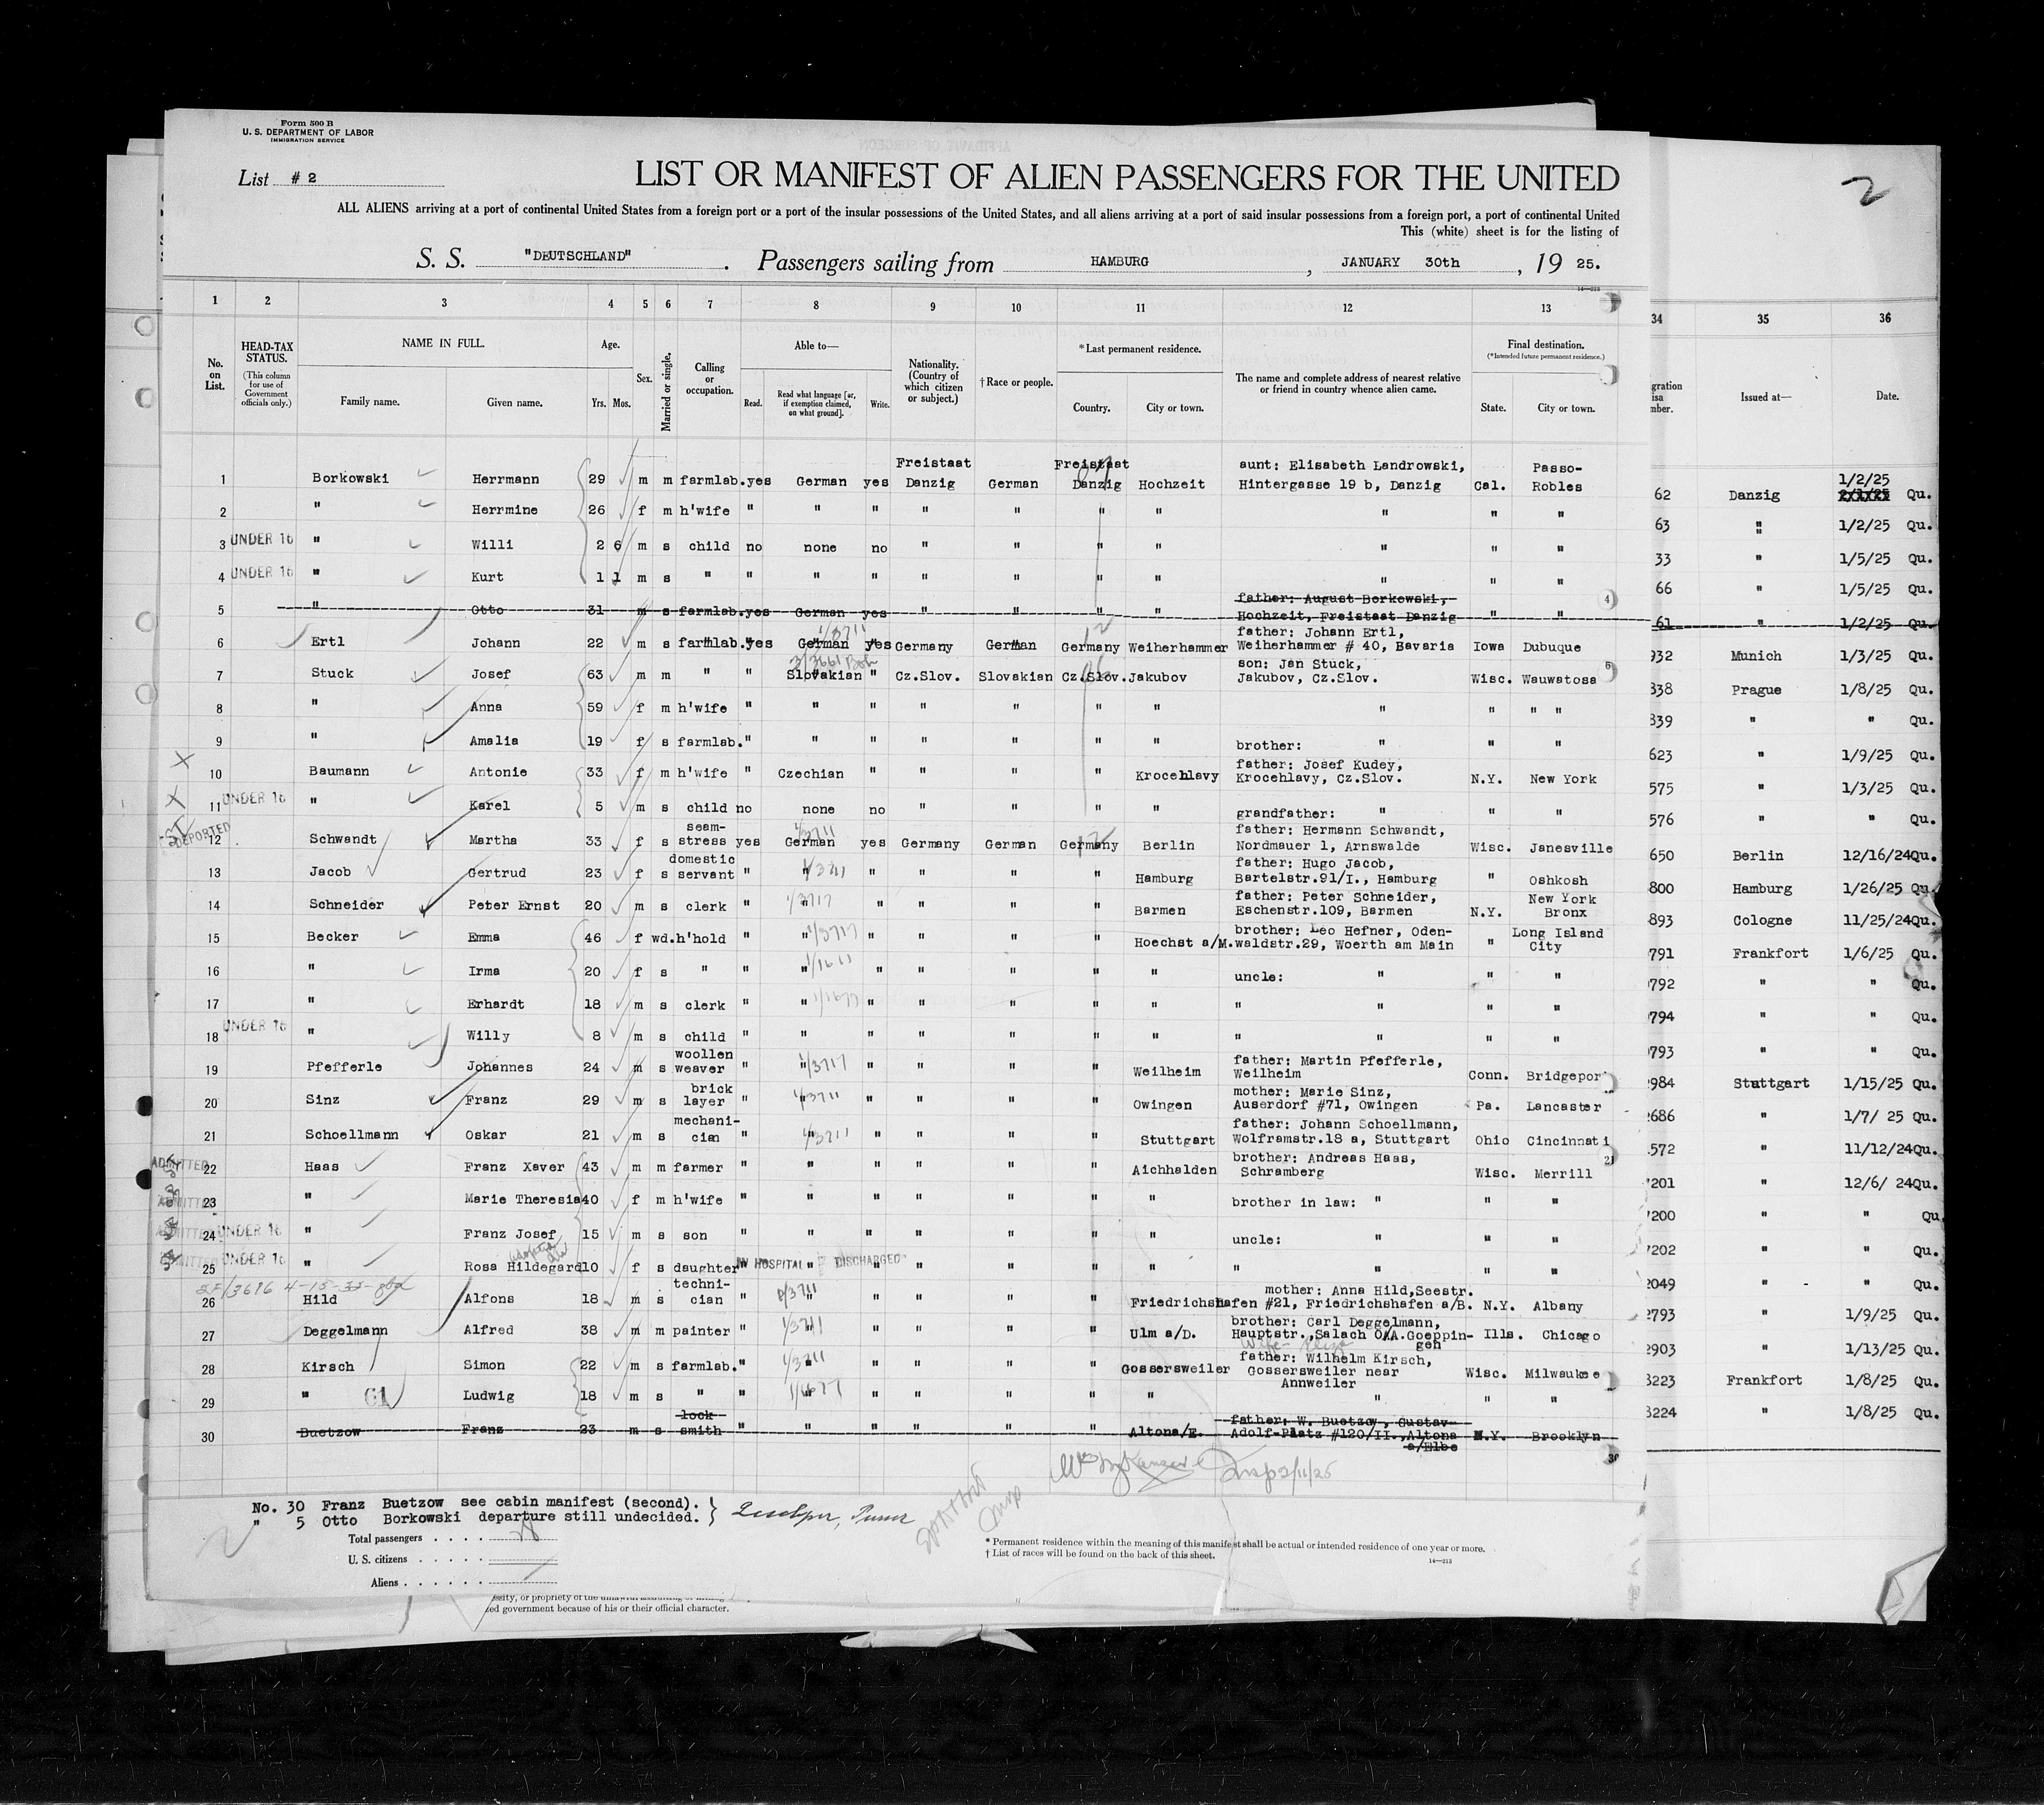 Form 500 B
U. S. DEPARTMENT OF LABOR
IMMIGRATION SERVICE
List # 2
LIST OR MANIFEST OF ALIEN PASSENGERS FOR THE UNITED
ALL ALIENS arriving at a port of continental United States from a foreign port or a port of the insular possessions of the United States, and all aliens arriving at a port of said insular possessions from a foreign port, a port of continental United
This (white) sheet is for the listing of
S. S. "DEUTSCHLAND" . Passengers sailing from HAMBURG , JANUARY 30th , 19 25.
2
1 2 3 4 5 6 7 8 9 10 11 12 13 34 35 36
No. on List. HEAD-TAX STATUS. (This column for use of Government officials only.) NAME IN FULL. Family name. Given name. Age. Yrs. Mos. Sex. Married or single. Calling or occupation. Able to— Read. Read what language [or, if exemption claimed, on what ground]. Write. Nationality. (Country of which citizen or subject.) † Race or people. * Last permanent residence. Country. City or town. The name and complete address of nearest relative or friend in country whence alien came. Final destination. (*Intended future permanent residence.) State. City or town. Issued at— Date.
1 Borkowski Herrmann 29 m m farmlab. yes German yes Freistaat Danzig German Freistaat Danzig Hochzeit aunt: Elisabeth Landrowski, Hintergasse 19 b, Danzig Cal. Passo-Robles 62 Danzig 1/2/25 2/1/25 Qu.
2 " Herrmine 26 f m h'wife " " " " " " " " " " 63 " 1/2/25 Qu.
3 UNDER 16 " Willi 2 6 m s child no none no " " " " " " " 33 " 1/5/25 Qu.
4 UNDER 16 " Kurt 1 1 m s " " " " " " " " " " " 66 " 1/5/25 Qu.
5 " Otto 31 m s farmlab. yes German yes " " " " father: August Borkowski, Hochzeit, Freistaat Danzig " " 61 " 1/2/25 Qu.
6 Ertl Johann 22 m s farmlab. yes German yes Germany German Germany Weiherhammer father: Johann Ertl, Weiherhammer # 40, Bavaria Iowa Dubuque 932 Munich 1/3/25 Qu.
7 Stuck Josef 63 m m " " Slovakian " Cz.Slov. Slovakian Cz.Slov. Jakubov son: Jan Stuck, Jakubov, Cz.Slov. Wisc. Wauwatosa 838 Prague 1/8/25 Qu.
8 " Anna 59 f m h'wife " " " " " " " " " " " 839 " " Qu.
9 " Amalia 19 f s farmlab. " " " " " " " brother: " " " 623 " 1/9/25 Qu.
10 Baumann Antonie 33 f m h'wife " Czechian " " " " Krocehlavy father: Josef Kudey, Krocehlavy, Cz.Slov. N.Y. New York 575 " 1/3/25 Qu.
11 UNDER 16 " Karel 5 m s child no none no " " " " grandfather: " " " 576 " " Qu.
DEPORTED 12 Schwandt Martha 33 f s seam-stress yes German yes Germany German Germany Berlin father: Hermann Schwandt, Nordmauer 1, Arnswalde Wisc. Janesville 650 Berlin 12/16/24 Qu.
13 Jacob Gertrud 23 f s domestic servant " " " " " " Hamburg father: Hugo Jacob, Bartelstr.91/I., Hamburg " Oshkosh 800 Hamburg 1/26/25 Qu.
14 Schneider Peter Ernst 20 m s clerk " " " " " " Barmen father: Peter Schneider, Eschenstr.109, Barmen N.Y. New York Bronx 893 Cologne 11/25/24 Qu.
15 Becker Emma 46 f wd. h'hold " " " " " " Hoechst a/M. brother: Leo Hefner, Oden-waldstr.29, Woerth am Main " Long Island City 791 Frankfort 1/6/25 Qu.
16 " Irma 20 f s " " " " " " " " uncle: " " " 792 " " Qu.
17 " Erhardt 18 m s clerk " " " " " " " " " " " 794 " " Qu.
18 UNDER 16 " Willy 8 m s child " " " " " " " " " " " 793 " " Qu.
19 Pfefferle Johannes 24 m s woollen weaver " " " " " " Weilheim father: Martin Pfefferle, Weilheim Conn. Bridgepor 984 Stuttgart 1/15/25 Qu.
20 Sinz Franz 29 m s brick layer " " " " " " Owingen mother: Marie Sinz, Auserdorf #71, Owingen Pa. Lancaster 2686 " 1/7/ 25 Qu.
21 Schoellmann Oskar 21 m s mechani-cian " " " " " " Stuttgart father: Johann Schoellmann, Wolframstr.18 a, Stuttgart Ohio Cincinnati 572 " 11/12/24 Qu.
ADMITTED 22 Haas Franz Xaver 43 m m farmer " " " " " " Aichhalden brother: Andreas Haas, Schramberg Wisc. Merrill 7201 " 12/6/ 24 Qu.
ADMITTED 23 " Marie Theresia 40 f m h'wife " " " " " " " brother in law: " " " 7200 " " Qu
ADMITTED 24 UNDER 16 " Franz Josef 15 m s son " " " " " " " uncle: " " " 7202 " " Qu.
ADMITTED 25 UNDER 16 " Rosa Hildegard 10 f s daughter IN HOSPITAL DISCHARGED " " " " " " " " " 2049 " " Qu.
26 Hild Alfons 18 m s techni-cian " " " " " " Friedrichshafen mother: Anna Hild,Seestr. #21, Friedrichshafen a/B. N.Y. Albany 2793 " 1/9/25 Qu.
27 Deggelmann Alfred 38 m m painter " " " " " " Ulm a/D. brother: Carl Deggelmann, Hauptstr.,Salach O/A.Goeppin-gen Ills. Chicago 2903 " 1/13/25 Qu.
28 Kirsch Simon 22 m s farmlab. " " " " " " Gossersweiler father: Wilhelm Kirsch, Gossersweiler near Annweiler Wisc. Milwaukee 3223 Frankfort 1/8/25 Qu.
29 " Ludwig 18 m s " " " " " " " " " " " 3224 " 1/8/25 Qu.
30 Buetzow Franz 23 m s lock-smith " " " " " " Altona/E. father: W. Buetzow, Gustav-Adolf-Platz #120/II.,Altona a/Elbe N.Y. Brooklyn
No. 30 Franz Buetzow see cabin manifest (second).
" 5 Otto Borkowski departure still undecided.
Total passengers
U. S. citizens
Aliens
* Permanent residence within the meaning of this manifest shall be actual or intended residence of one year or more.
† List of races will be found on the back of this sheet.
14—213
ed government because of his or their official character.